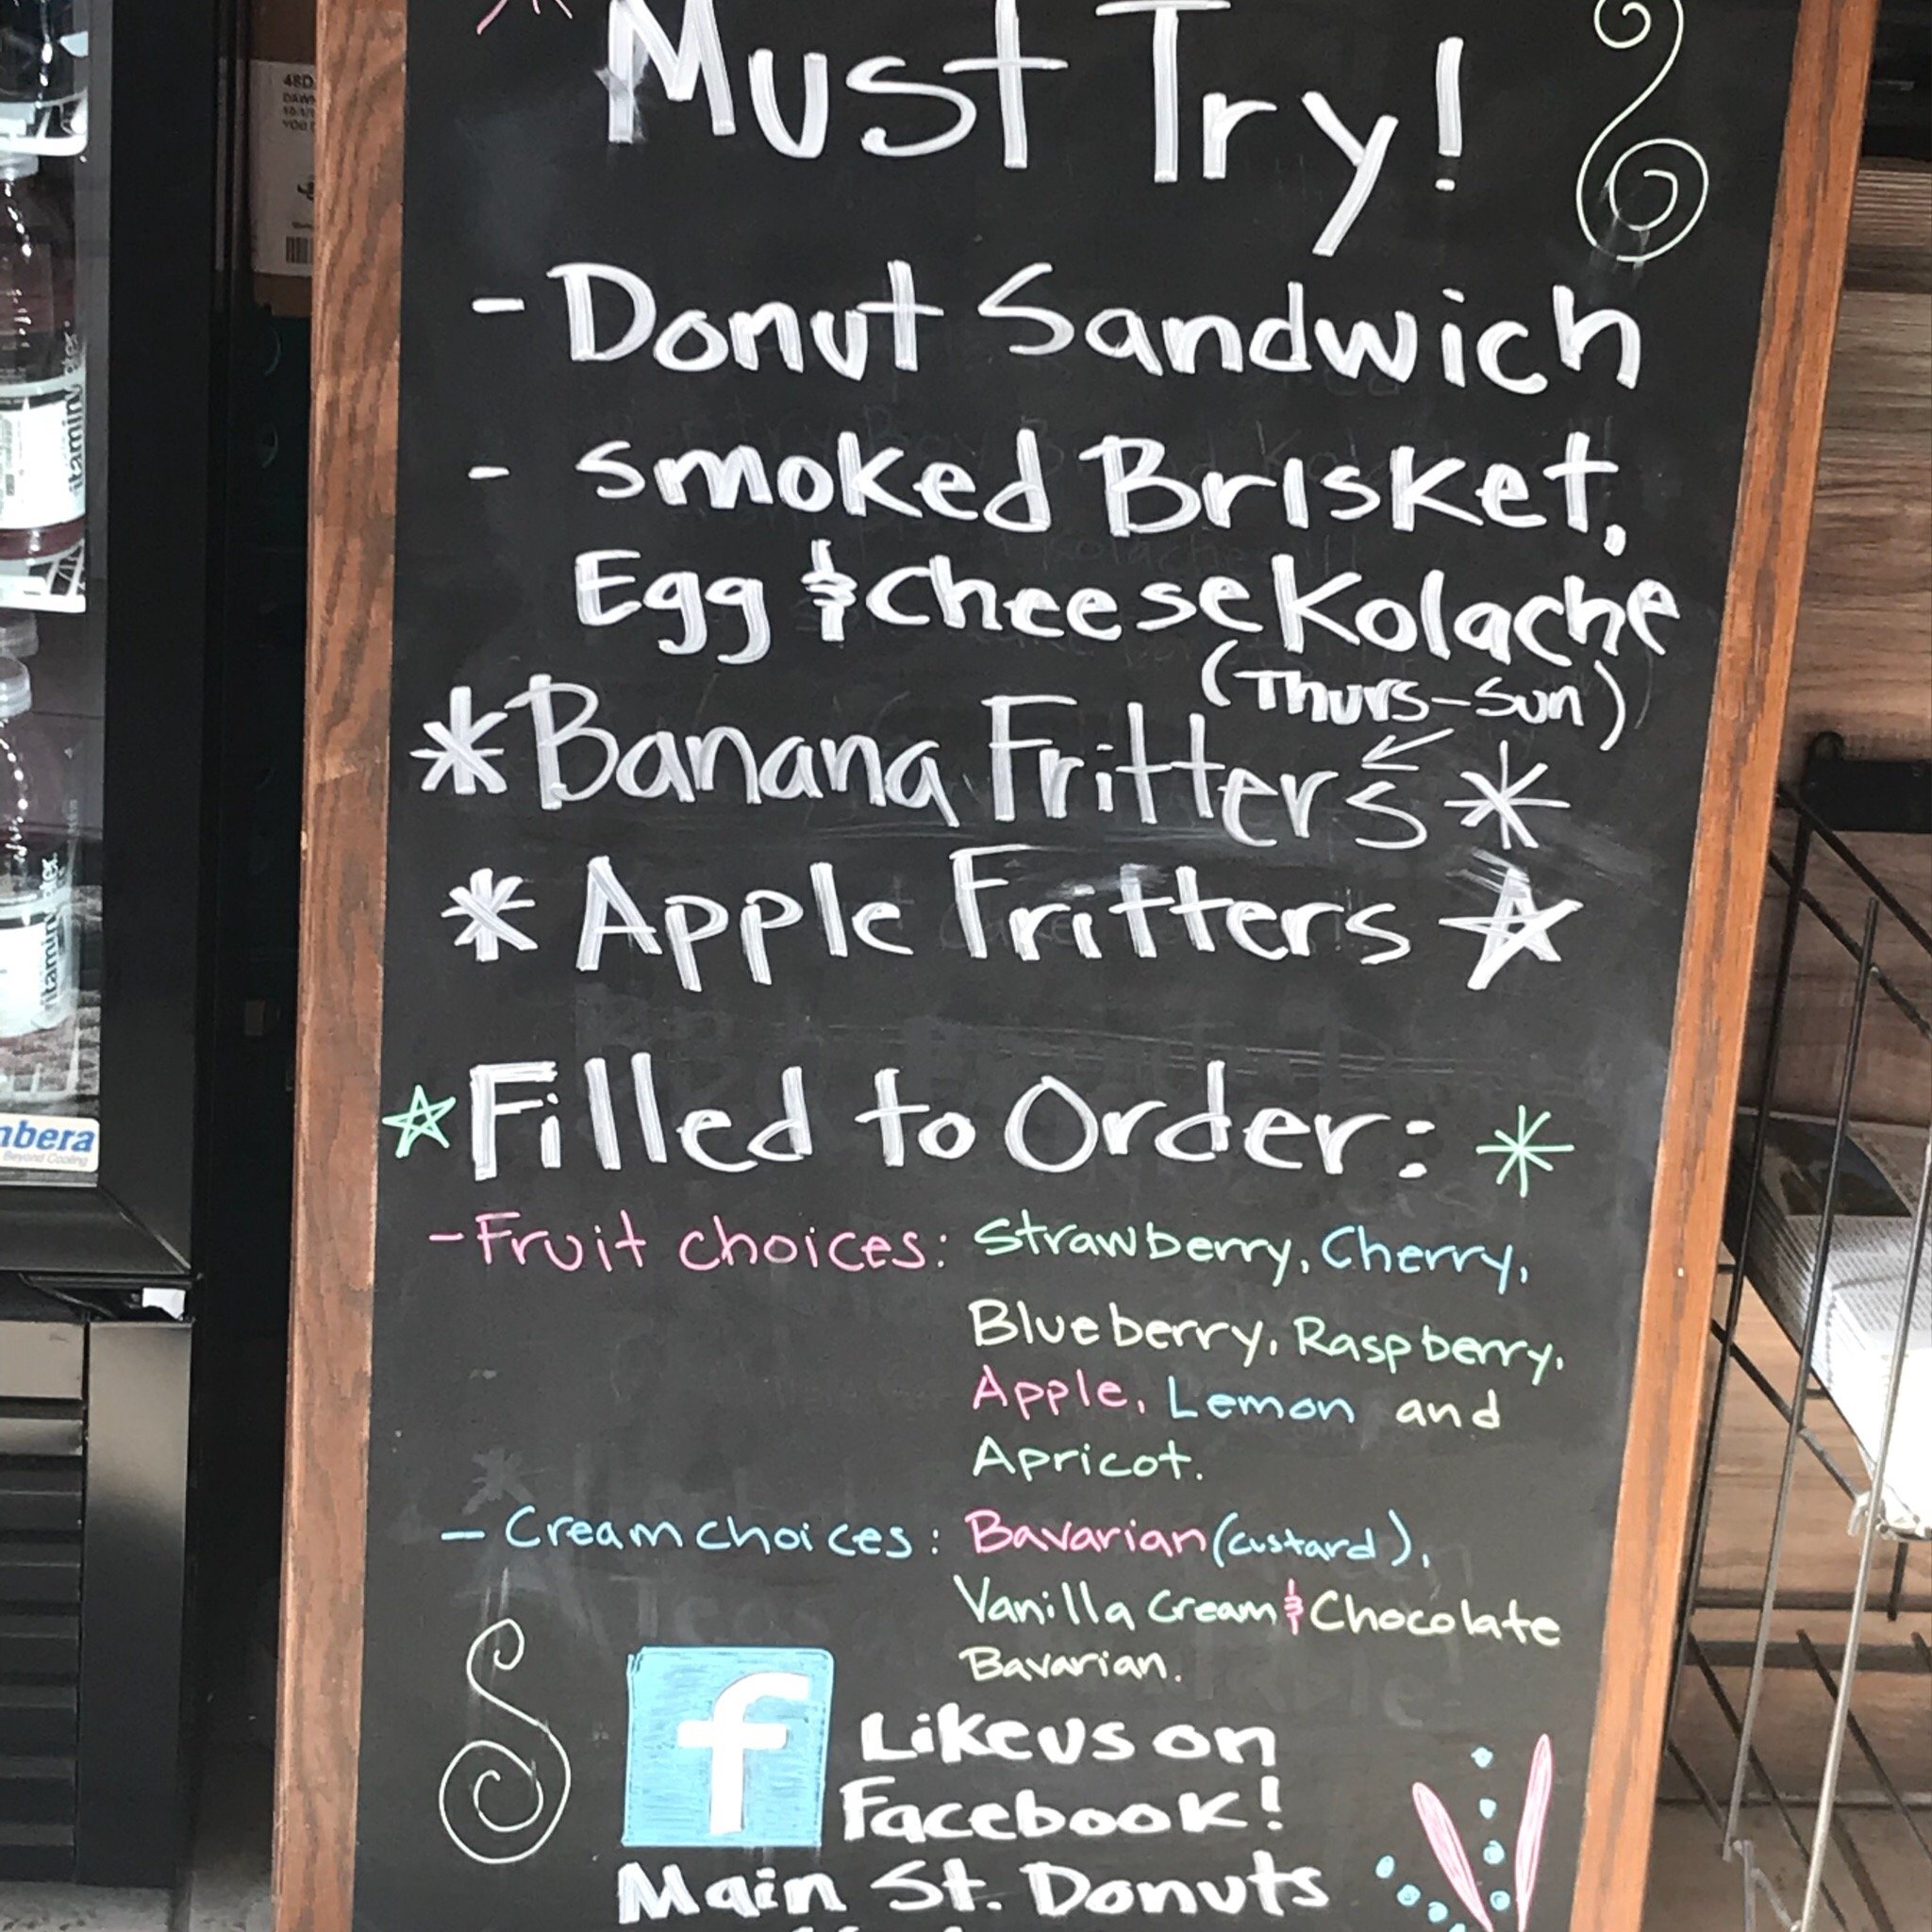 Must Try!
- Donut Sandwich
- Smoked Brisket,
Egg & Cheese Kolache
(Thurs-Sun)
*Banana Fritters*
* Apple Fritters ☆
☆Filled to Order: *
-Fruit choices: Strawberry, Cherry,
Blueberry, Raspberry,
Apple, Lemon and
Apricot.
- Cream choices: Bavarian (custard),
Vanilla Cream & Chocolate
Bavarian.
f
Like us on
Facebook!
Main St. Donuts
48D
DAWN
vitamin
vitamin
nbera
Beyond Cooling